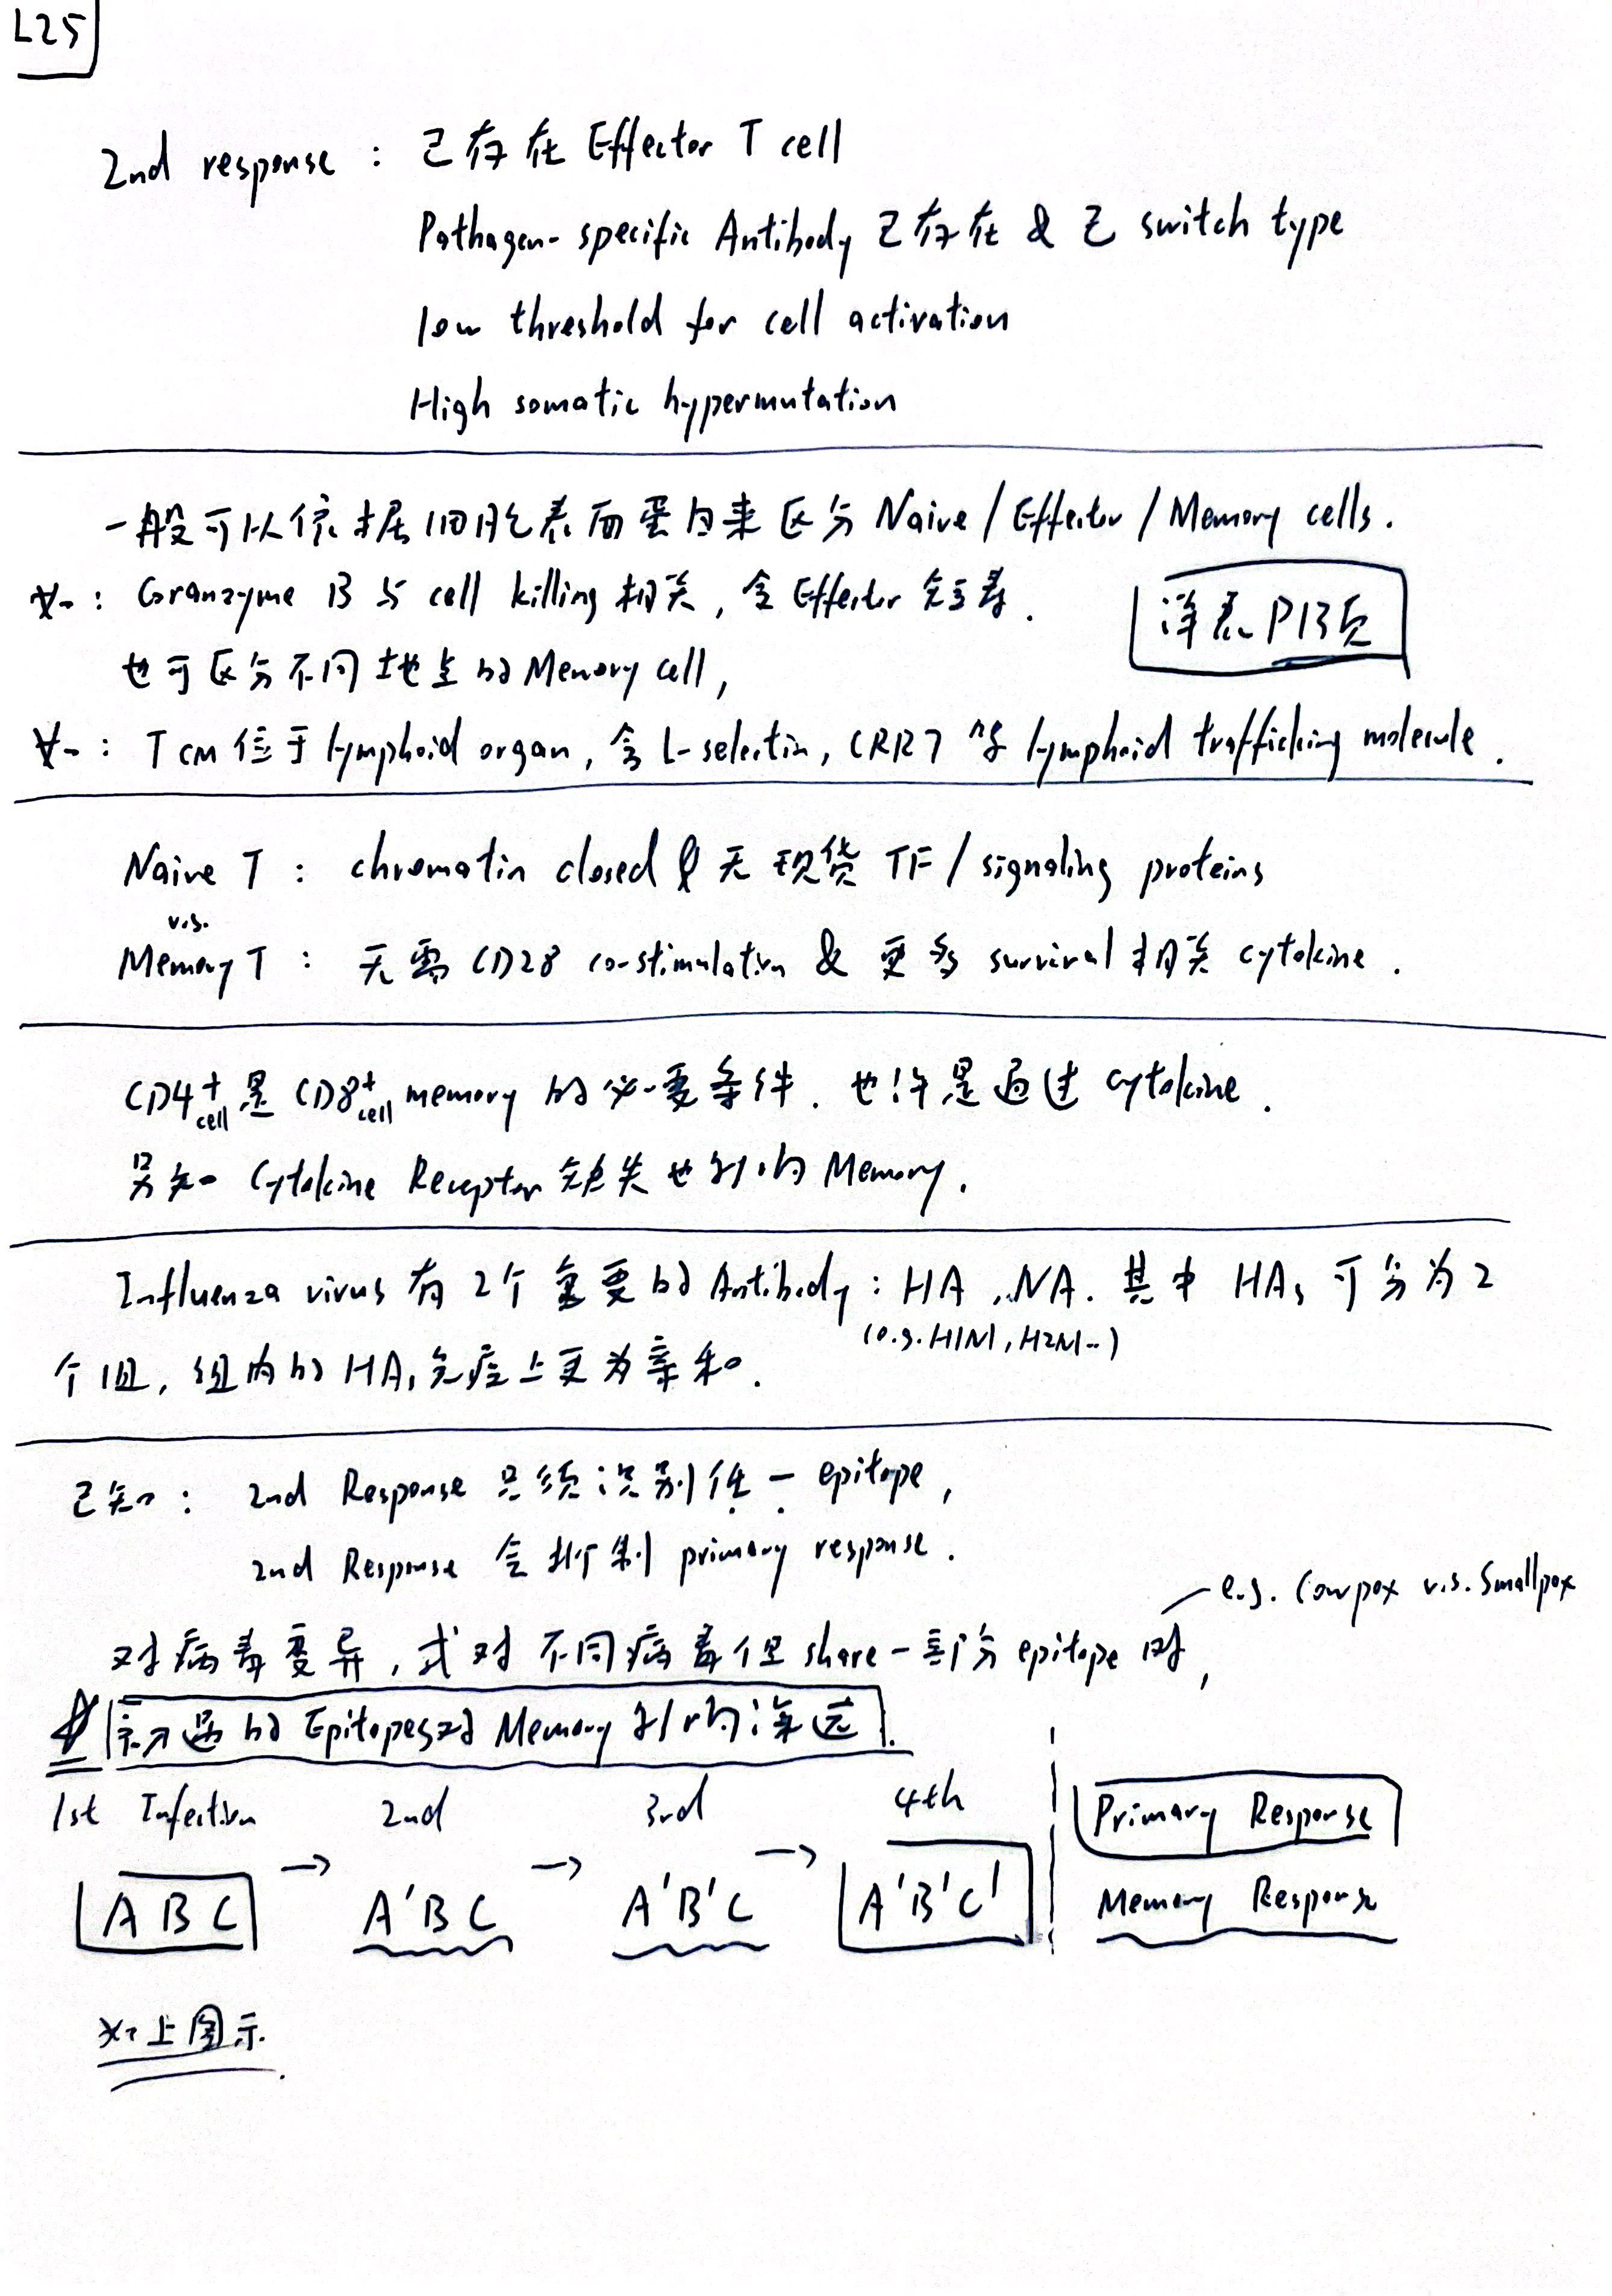 L25
2nd response : 已存在 Effector T cell
Pathagen-specific Antibody 已存在 & 已 switch type
low threshold for cell activation
High somatic hypermutation
一般可以依据细胞表面蛋白来区分 Naive / Effector / Memory cells.
如: Granzyme B 与 cell killing 相关, 含 Effector
详表 P13页
也可区分不同地点的 Memory cell,
如: TCM 位于 lymphoid organ, 含 L-selectin, CCR7 等 lymphoid trafficking molecule.
Naive T : chromatin closed & 无现货 TF / signaling proteins
v.s.
Memory T : 无需 CD28 co-stimulation & 更多 survival 相关 cytokine.
CD4+ cell 是 CD8+ cell memory 的必要条件. 也许是通过 cytokine.
另知 Cytokine Receptor 缺失也影响 Memory.
Influenza virus 有 2个重要的 Antibody : HA, NA. 其中 HAs 可分为 2
(e.g. H1N1, H2N1..)
个组, 组内的 HAs 免疫上更为亲和.
已知: 2nd Response 只须识别任一 epitope,
2nd Response 会抑制 primary response.
e.g. Cowpox v.s. Smallpox
对病毒变异, 或对不同病毒但 share 一部分 epitope 时,
初遇的 Epitopes对 Memory 影响深远.
1st Infection 2nd 3rd 4th Primary Response
A B C → A'B C → A'B'C → A'B'C' Memory Response
如上图示.